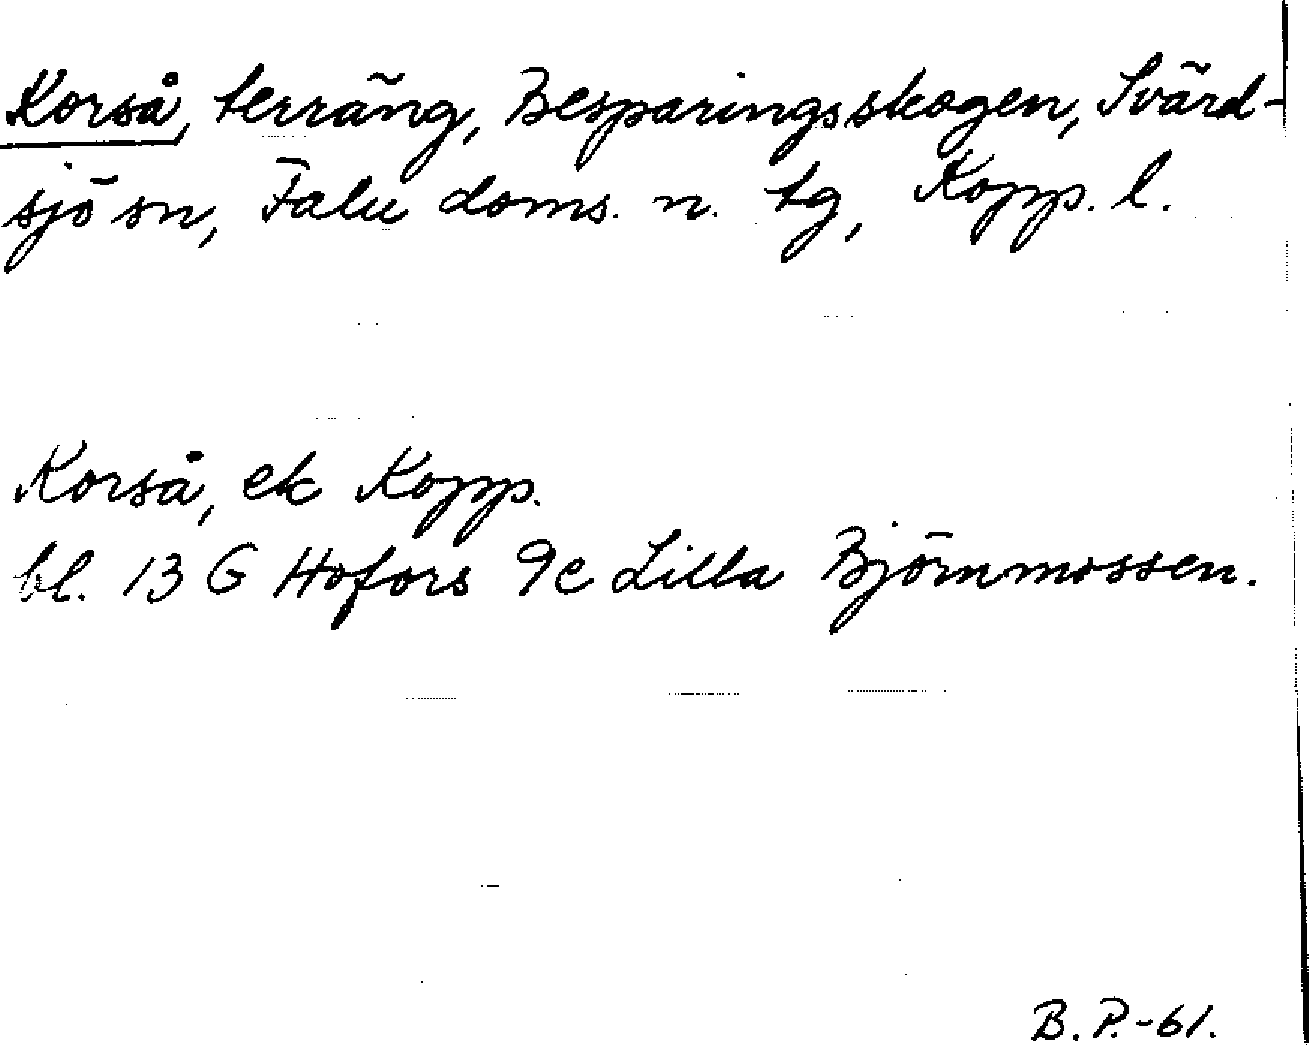 Korså, terräng, Besparingsskogen, Svärd-
sjö sn, Falu doms. n. tg, Kopp. l.
Korså, ek Kopp.
bl. 13 G Hofors 9c Lilla Björnmossen.
B. P.-61.